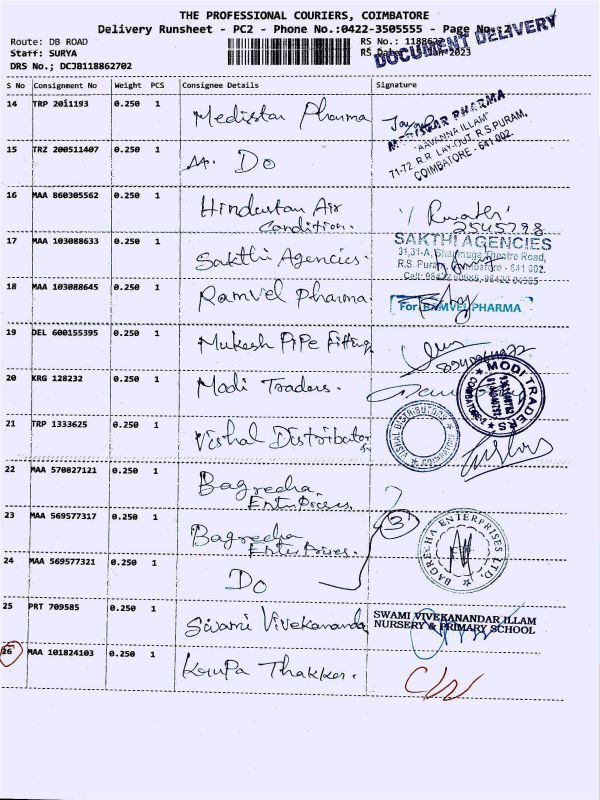 THE PROFESSIONAL COURIERS, COIMBATORE
Delivery Runsheet - PC2 - Phone No.:0422-3505555 - Page No.:2
DOCUMENT DELIVERY
Route: DB ROAD
RS No.: 1188627
Staff: SURYA
RS Date: Jan-2023
DRS No.; DCJB118862702
S No Consignment No Weight PCS Consignee Details Signature
14 TRP 2011193 0.250 1 Medistar Pharma
MEDISTAR PHARMA
"AAVANNA ILLAM"
71-72, R.R. LAY-OUT, R.S.PURAM,
COIMBATORE - 641 002.
15 TRZ 200511407 0.250 1 Do
16 MAA 860305562 0.250 1 Hindustan Air
Condition.
2545798
17 MAA 103088633 0.250 1 Sakthi Agencies.
SAKTHI AGENCIES
31,31-A, Shanmuga Theatre Road,
R.S. Puram, Coimbatore - 641 002.
Cell:
18 MAA 103088645 0.250 1 Ramvel Pharma.
For RAMVEL PHARMA
19 DEL 600155395 0.250 1 Mukesh PiPe Fitting
20 KRG 128232 0.250 1 Modi Traders.
MODI TRADERS
21 TRP 1333625 0.250 1 Vishal Distributors
VISHAL DISTRIBUTORS
22 MAA 570827121 0.250 1 Bagrecha
EnterPrises.
23 MAA 569577317 0.250 1 Bagrecha
EnterPrises.
3
BAGRECHA ENTERPRISES LTD.
24 MAA 569577321 0.250 1 Do
25 PRT 709585 0.250 1 Swami Vivekananda
SWAMI VIVEKANANDAR ILLAM
NURSERY & PRIMARY SCHOOL
26 MAA 101824103 0.250 1 KrupA Thakker.